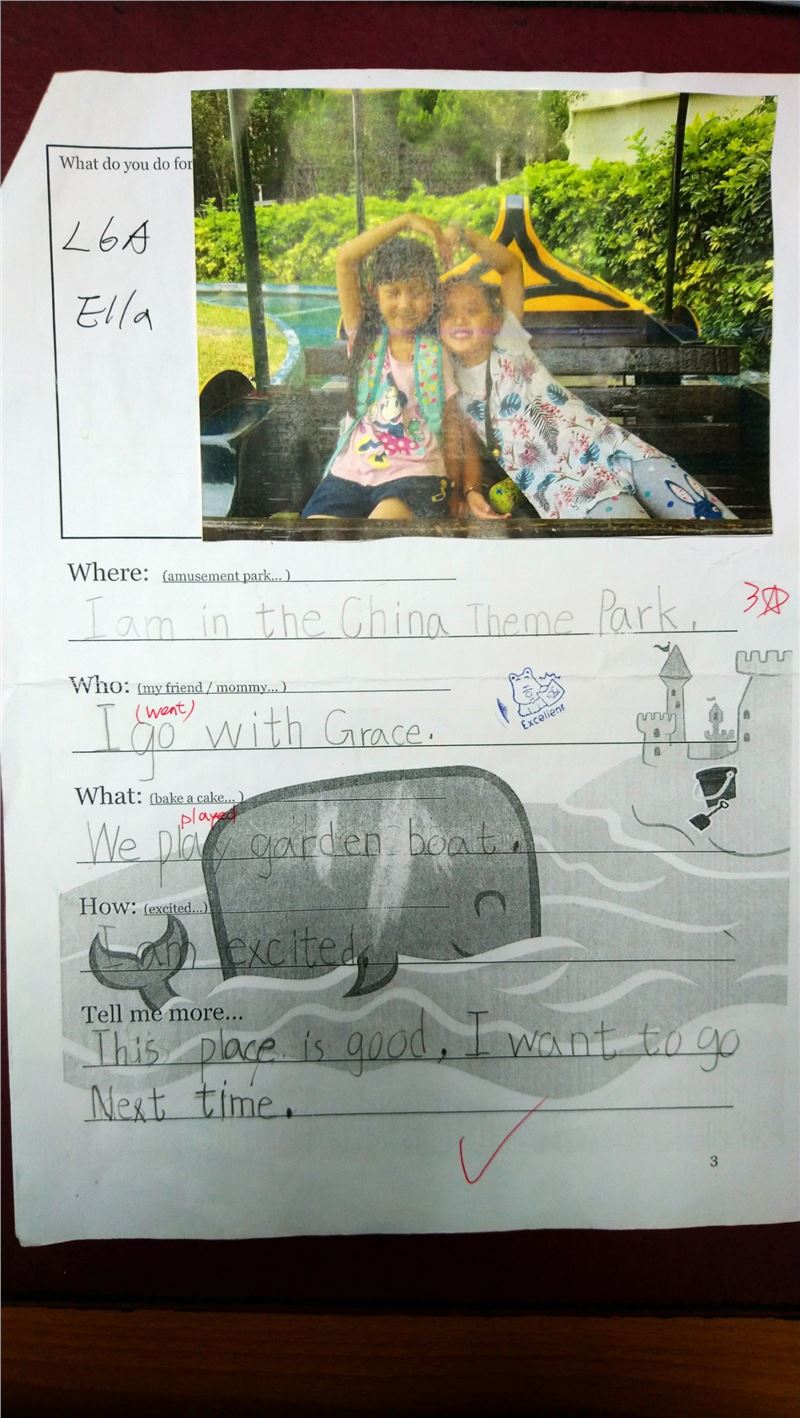 What do you do for
L6A
Ella
Where: (amusement park... )
I am in the China Theme Park.
3
Who: (my friend / mommy... )
Excellent
(went)
I go with Grace.
What: (bake a cake... )
played
We play garden boat.
How: (excited...)
I am excited.
Tell me more...
This place is good, I want to go
Next time.
3